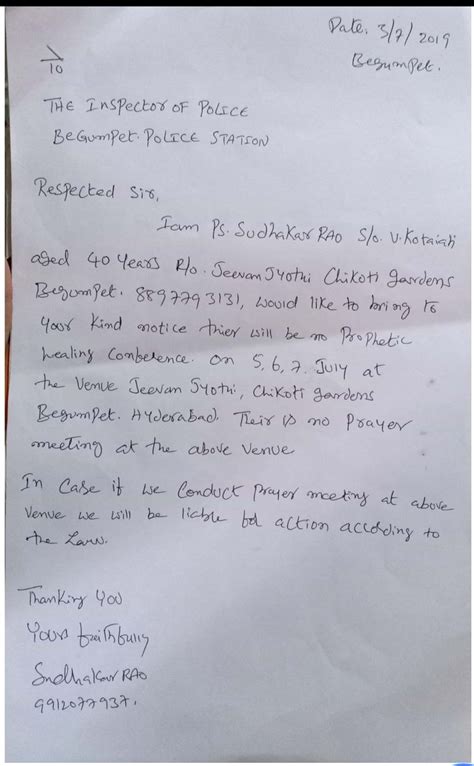 Date, 3/7/2019
Begumpet.
To
THE INSPECTOR OF POLICE
BEGUMPET. POLICE STATION
Respected Sir,
Iam Ps. Sudhakar RAO S/o. V. Kotaiah
aged 40 years R/o. Jeevan Jyothi Chikoti gardens
Begumpet. 8897793131, would like to bring to
your kind notice thier will be no Prophetic
healing Conference. on 5, 6, 7. July at
the Venue Jeevan Jyothi, Chikoti gardens
Begumpet. Hyderabad. Their is no Prayer
meeting at the above Venue
In Case if we Conduct prayer meeting at above
Venue we will be liable for action according to
the Law.
Thanking You
Yours faithfully
Sudhakar RAO
9912077937.